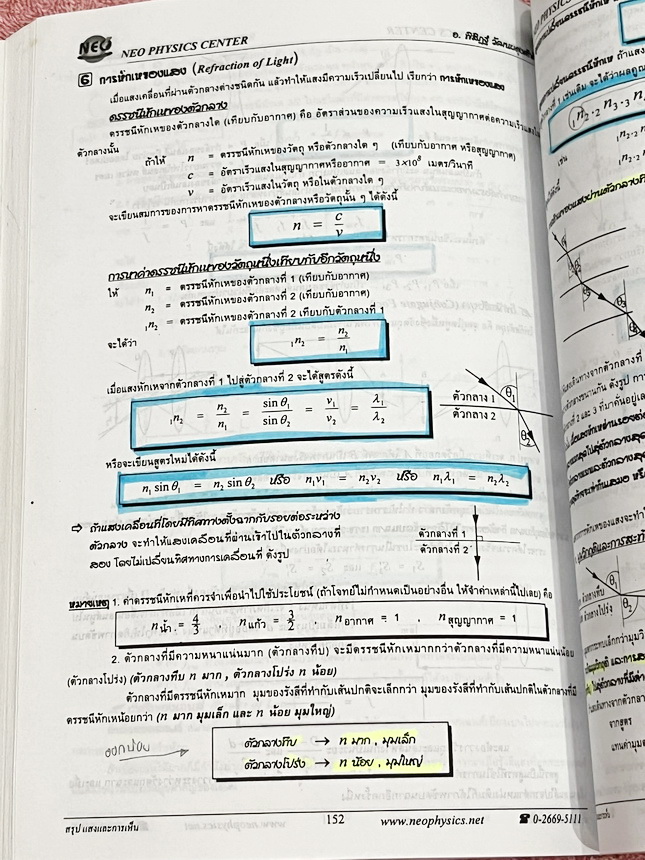 NEO NEO PHYSICS CENTER
6 การหักเหของแสง (Refraction of Light)
เมื่อแสงเคลื่อนที่ผ่านตัวกลางต่างชนิดกัน แล้วทำให้แสงมีความเร็วเปลี่ยนไป เรียกว่า การหักเหของแสง
ดรรชนีหักเหของตัวกลาง
ดรรชนีหักเหของตัวกลางใด (เทียบกับอากาศ) คือ อัตราส่วนของความเร็วแสงในสุญญากาศต่อความเร็วแสงใน
ตัวกลางนั้น
ถ้าให้ n = ดรรชนีหักเหของวัตถุ หรือตัวกลางใด ๆ (เทียบกับอากาศ หรือสุญญากาศ)
c = อัตราเร็วแสงในสุญญากาศหรืออากาศ = 3×10⁸ เมตร/วินาที
v = อัตราเร็วแสงในวัตถุ หรือในตัวกลางใด ๆ
จะเขียนสมการของการหาดรรชนีหักเหของตัวกลางหรือวัตถุนั้น ๆ ได้ดังนี้
n = c/v
การหาค่าดรรชนีหักเหของวัตถุหนึ่งเทียบกับอีกวัตถุหนึ่ง
ให้ n₁ = ดรรชนีหักเหของตัวกลางที่ 1 (เทียบกับอากาศ)
n₂ = ดรรชนีหักเหของตัวกลางที่ 2 (เทียบกับอากาศ)
₁n₂ = ดรรชนีหักเหของตัวกลางที่ 2 เทียบกับตัวกลางที่ 1
จะได้ว่า ₁n₂ = n₂/n₁
เมื่อแสงหักเหจากตัวกลางที่ 1 ไปสู่ตัวกลางที่ 2 จะได้สูตรดังนี้
₁n₂ = n₂/n₁ = sin θ₁/sin θ₂ = v₁/v₂ = λ₁/λ₂
ตัวกลาง 1 θ₁
ตัวกลาง 2 θ₂
หรือจะเขียนสูตรใหม่ได้ดังนี้
n₁ sin θ₁ = n₂ sin θ₂ หรือ n₁v₁ = n₂v₂ หรือ n₁λ₁ = n₂λ₂
⇨ ถ้าแสงเคลื่อนที่โดยมีทิศทางตั้งฉากกับรอยต่อระหว่าง
ตัวกลาง จะทำให้แสงเคลื่อนที่ผ่านเข้าไปในตัวกลางที่
สอง โดยไม่เปลี่ยนทิศทางการเคลื่อนที่ ดังรูป
ตัวกลางที่ 1
ตัวกลางที่ 2
หมายเหตุ 1. ค่าดรรชนีหักเหที่ควรจำเพื่อนำไปใช้ประโยชน์ (ถ้าโจทย์ไม่กำหนดเป็นอย่างอื่น ให้จำค่าเหล่านี้ไปเลย) คือ
n น้ำ = 4/3 , n แก้ว = 3/2 , n อากาศ = 1 , n สุญญากาศ = 1
2. ตัวกลางที่มีความหนาแน่นมาก (ตัวกลางทึบ) จะมีดรรชนีหักเหมากกว่าตัวกลางที่มีความหนาแน่นน้อย
(ตัวกลางโปร่ง) (ตัวกลางทึบ n มาก , ตัวกลางโปร่ง n น้อย)
ตัวกลางที่มีดรรชนีหักเหมาก มุมของรังสีที่ทำกับเส้นปกติจะเล็กกว่า มุมของรังสีที่ทำกับเส้นปกติในตัวกลางที่มี
ดรรชนีหักเหน้อยกว่า (n มาก มุมเล็ก และ n น้อย มุมใหญ่)
ตัวกลางทึบ → n มาก , มุมเล็ก
ตัวกลางโปร่ง → n น้อย , มุมใหญ่
สรุป แสงและการเห็น 152 www.neophysics.net ☎ 0-2669-5111